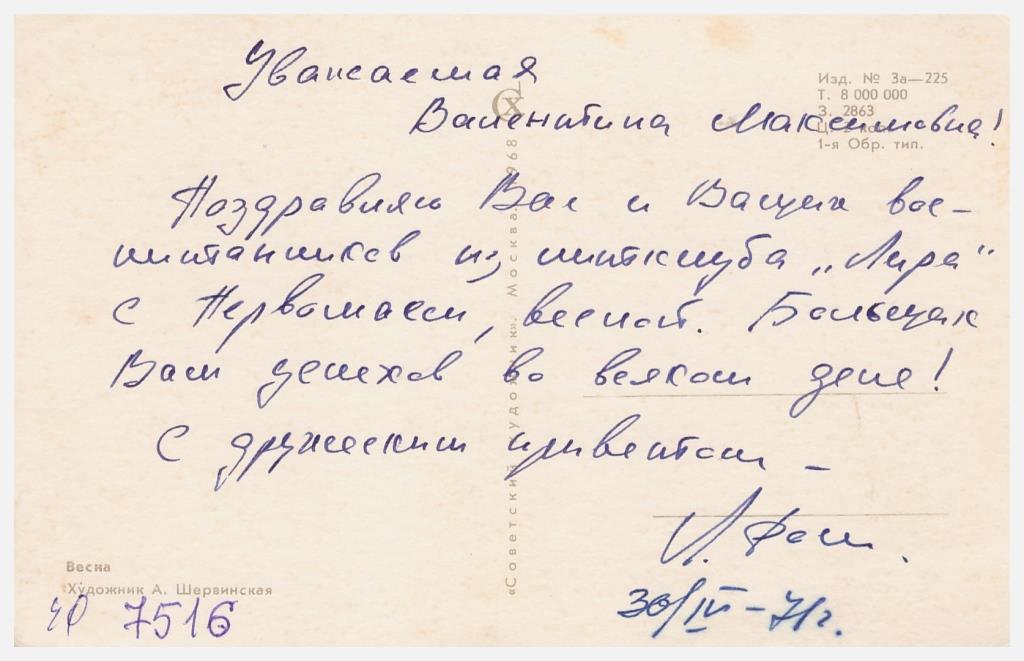 Уважаемая
Валентина Максимовна!
Поздравляю Вас и Ваших вос-
питанников из интклуба „Лира"
с Первомаем, весной. Больших
Вам успехов во всяком деле!
С дружеским приветом –
30/IV – 71 г.
Изд. № 3а—225
Т. 8 000 000
З. 2863
1-я Обр. тип.
«Советский художник». Москва. 1968
Весна
Художник А. Шервинская
7516